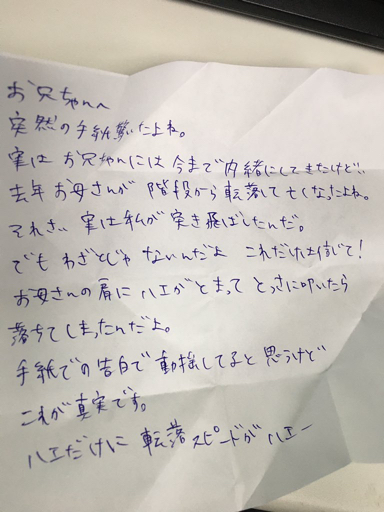 お兄ちゃんへ
突然の手紙驚いたよね。
実は お兄ちゃんには 今まで内緒にしてきたけど!!
去年 お母さんが 階段から転落して亡くなったよね。
それさ、実は私が突き飛ばしたんだ。
でも わざとじゃ ないんだよ これだけは信じて!
お母さんの肩に ハエがとまって とっさに叩いたら
落ちてしまったんだよ。
手紙での告白で動揺してると思うけど
これが真実です。
ハエだけに 転落スピードが ハエー